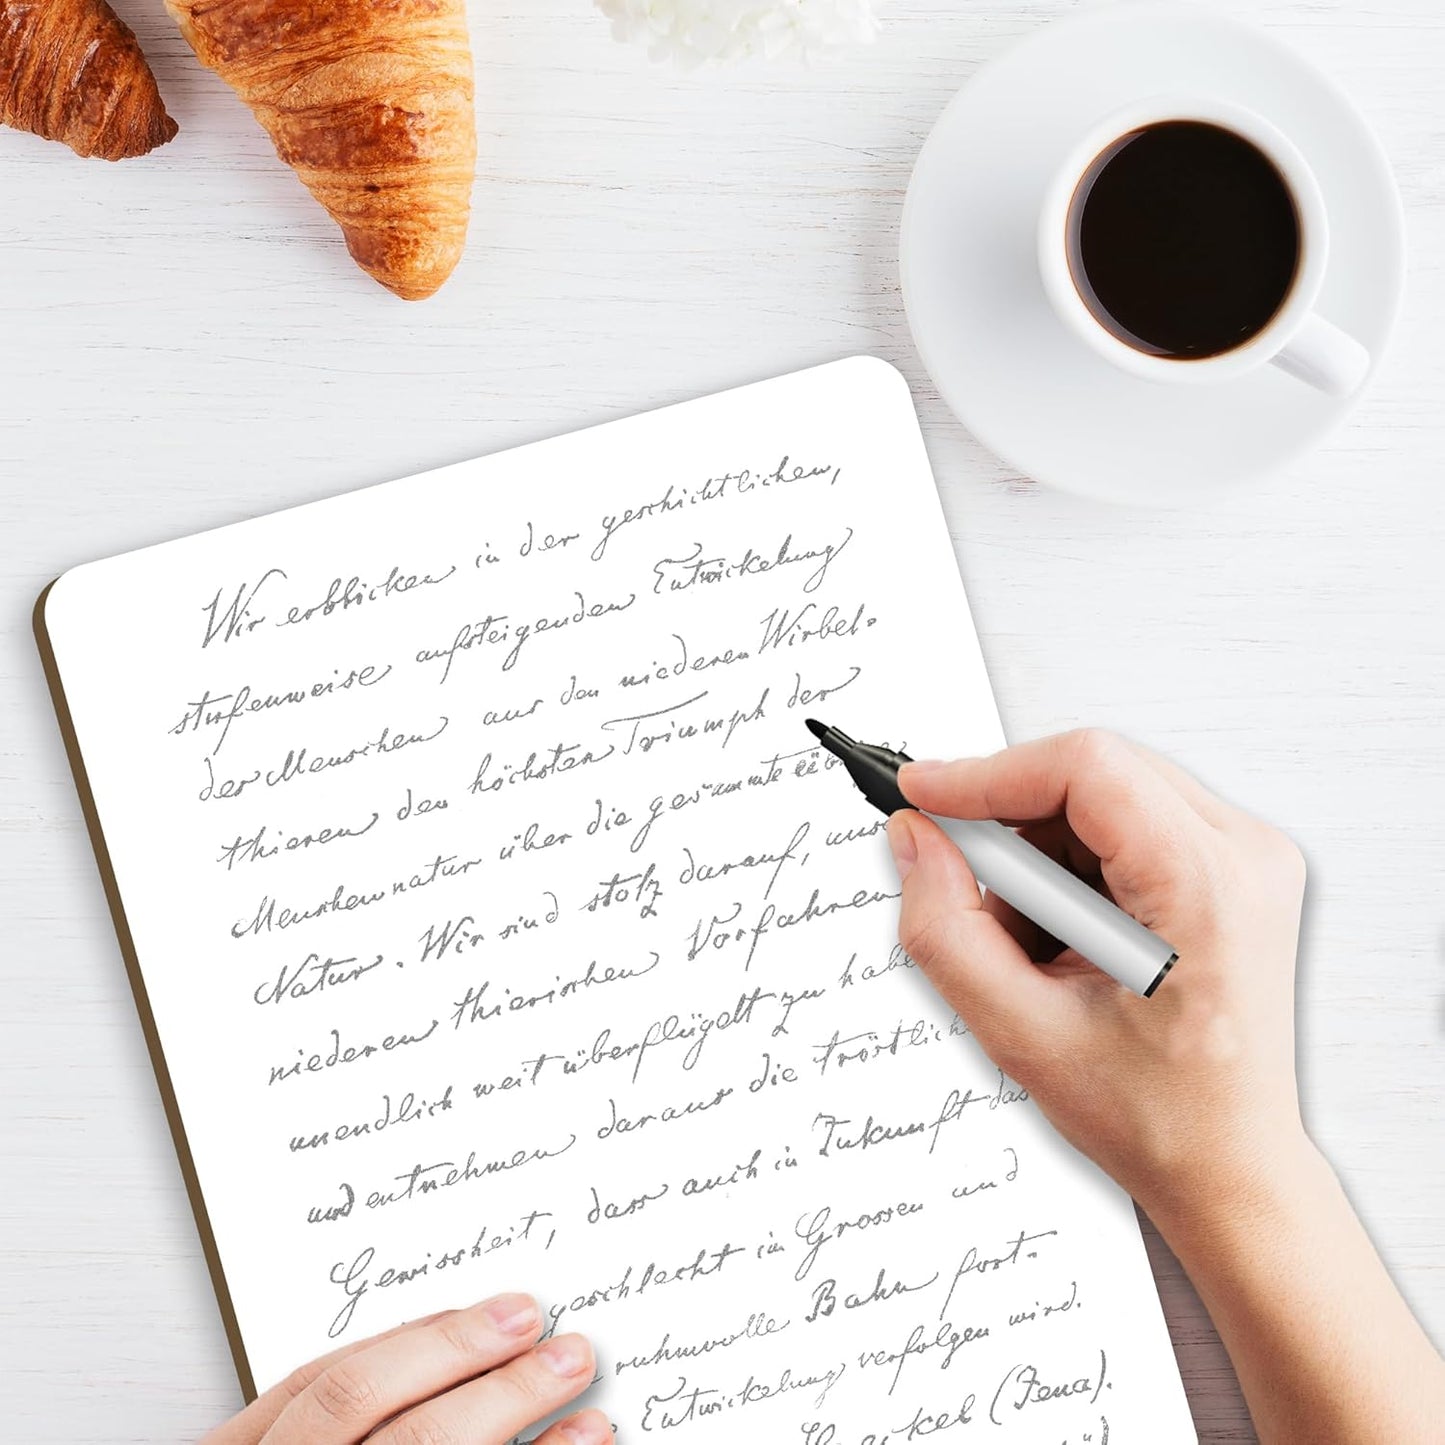 Wir erblicken in der geschichtlichen,
stufenweise aufsteigenden Entwickelung
der Menschen aus den niederen Wirbel-
thieren den höchsten Triumph der
Menschennatur über die gesammte
Natur. Wir sind stolz darauf, uns
niederen thierischen Vorfahren
unendlich weit überflügelt zu habe
und entnehmen daraus die tröstlich
Gewissheit, dass auch in Zukunft das
geschlecht im Grossen und
ruhmvolle Bahn fort-
Entwickelung verfolgen wird.
(Jena).